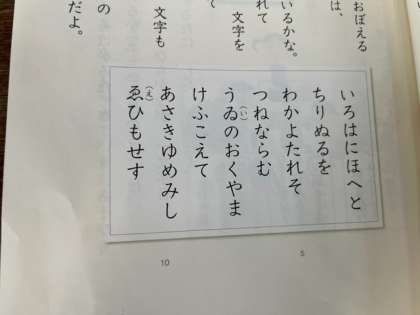 おぼえる
は、
いるかな。
れて
文字を
て
文字も
の
だよ。
いろはにほへと
ちりぬるを
わかよたれそ
つねならむ
うゐ(い)のおくやま
けふこえて
あさきゆめみし
ゑ(え)ひもせす
5
10